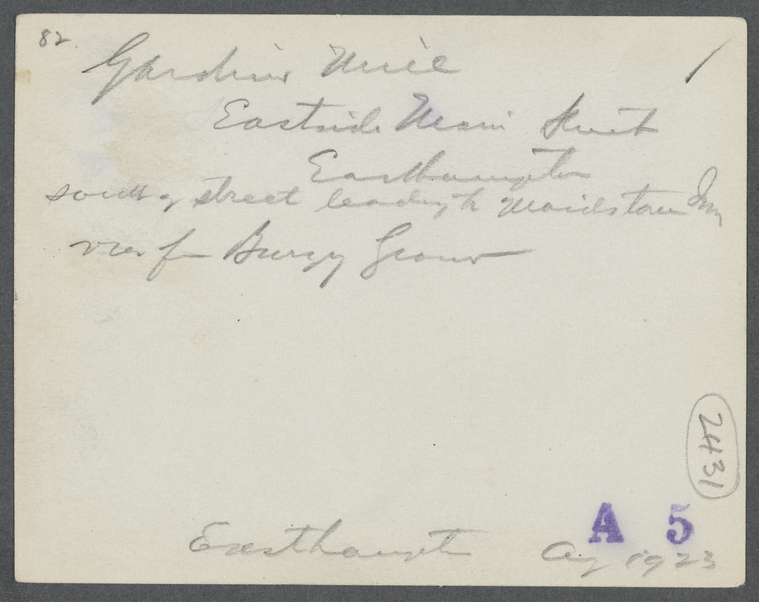 82.
Gardiner Mill
/
Eastside Main Street
Easthampton
south of street leading to Maidstone Inn
view fm Buryg Ground
2431
A 5
Easthampton Aug 1923